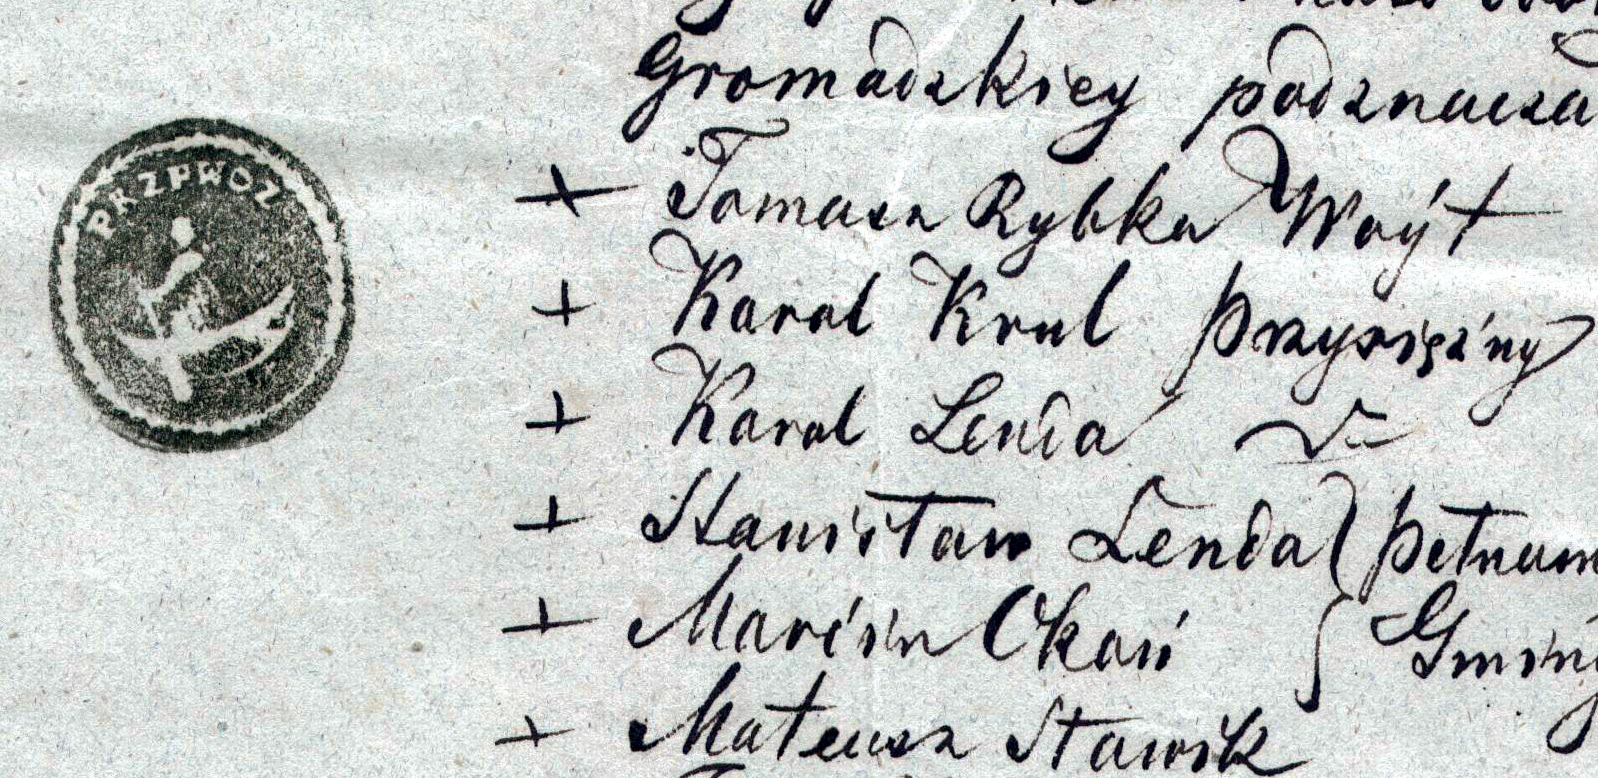 PRZPWOZ
Gromadzkiey podznacza
+ Tomasz Rybka Woyt
+ Karol Krul Przysiężny
+ Karol Lenda
+ Stanisław Lenda } pełnam
+ Marcin Okoń } Gminy
+ Mateusz Stawik